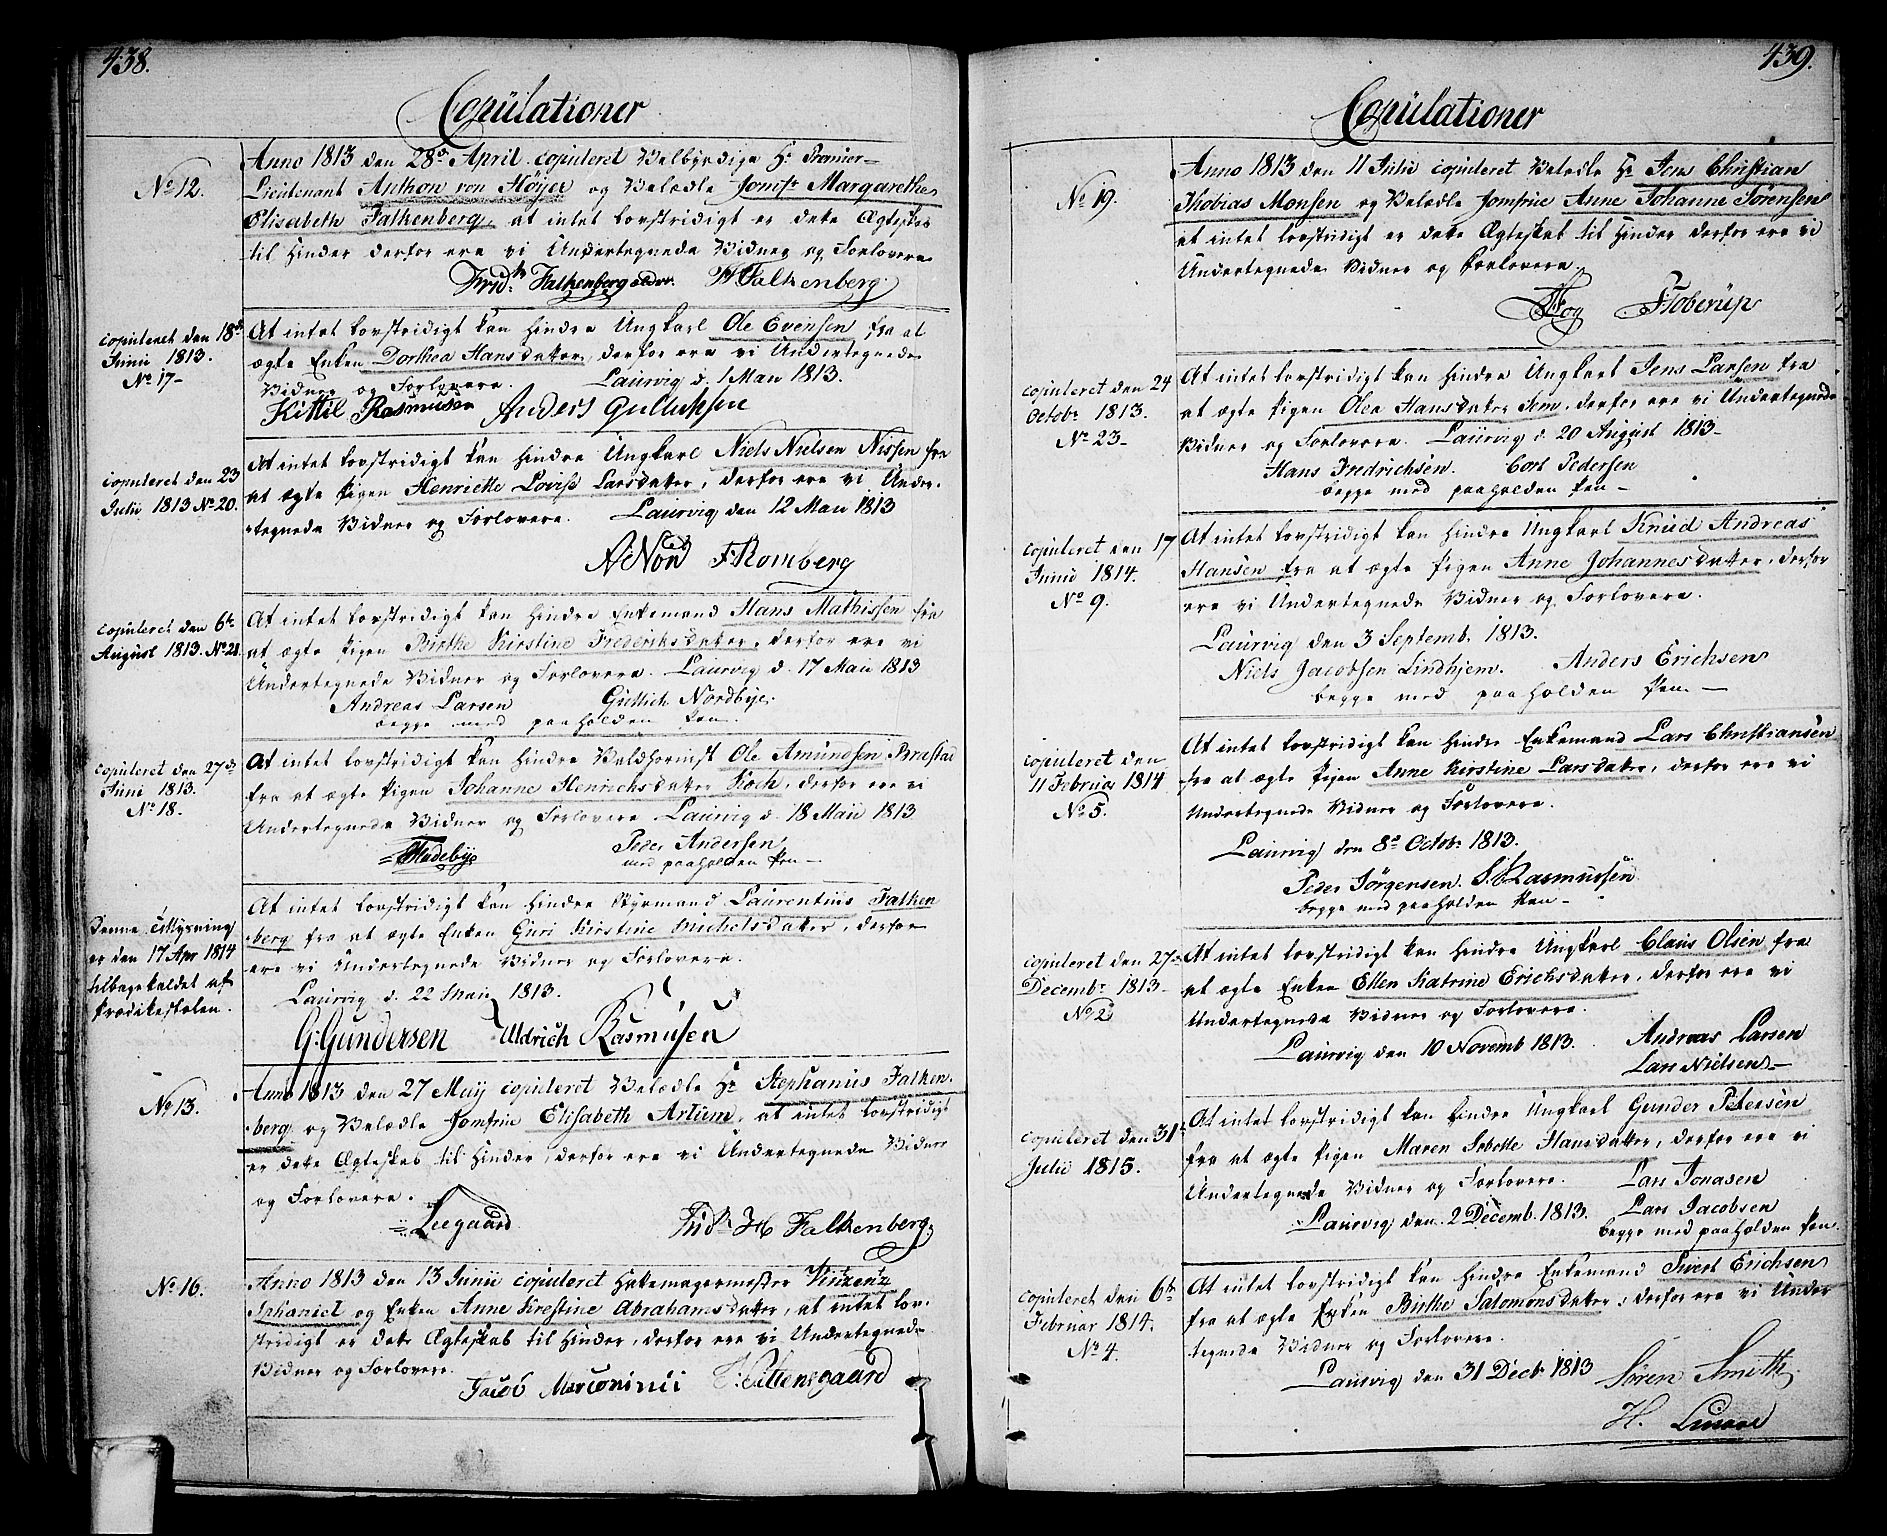 438.
Copulationer
No 12.
Anno 1813 den 28de April copuleret Velbyrdige Hr Premier-
Lieutenant Anthon von Høyer og Velædle Jomfr Margarethe
Elisabeth Falkenberg, at intet lovstridigt er dette Ægteskab
til Hinder derfor ere vi Undertegnede Vidner og Forlovere
Fridh Falkenberg ældre. Falkenberg
copuleret den 18de
Junii 1813.
No 17-
At intet lovstridigt kan hindre Ungkarl Ole Evensen fra at
ægte Enken Dorthea Hansdatter, derfor ere vi Undertegnede
Vidner og Forlovere. Laurvig d. 1 Maii 1813.
Kittil Rasmusen Anders Gullichsen
copuleret den 23
Julii 1813 No 20.
At intet lovstridigt kan hindre Ungkarl Niels Nielsen Nissen fra
at ægte Pigen Henriette Lovise Larsdatter, derfor ere vi Under-
tegnede Vidner og Forlovere. Laurvig den 12 Maii 1813
A Nord F. Romberg
copuleret den 6te
August 1813. No 21.
At intet lovstridigt kan hindre Enkemand Hans Mathissen fra
at ægte Pigen Birthe Kirstine Frederiksdatter, derfor ere vi
Undertegnede Vidner og Forlovere. Laurvig d. 17 Maii 1813
Andreas Larsen Gullich Nordbye
begge med paaholden Pen.
copuleret den 27de
Juni 1813.
No 18.
At intet lovstridigt kan hindre Valdhornist Ole Amundsen Brastad
fra at ægte Pigen Johanne Henrichsdatter Koch, derfor ere vi
Undertegnede Vidner og Forlovere Laurvig d. 18 Maii 1813
Peder Andersen
med paaholden Pen-
Denne Tillysning
er den 17 Apr 1814
tilbagekaldet af
Prædikestolen.
At intet lovstridigt kan hindre Styrmand Laurentius Falken
berg fra at ægte Enken Guri Kirstine Michelsdatter, derfor
ere vi Undertegnede Vidner og Forlovere.
Laurvig d. 22 Maii 1813.
G: Gundersen Uldrich Rasmusen
No 13.
Anno 1813 den 27 May copuleret Velædle Hr Stephanus Falken-
berg og Velædle Jomfrue Elisabeth Artum, at intet lovstridigt
er dette Ægteskab til Hinder, derfor ere vi Undertegnede Vidner
og Forlovere.
Leegaard Fridr H Falkenberg
No 16.
Anno 1813 den 13 Junii copuleret Hattemagermester Vinzenz
og Enken Anne Kirestine Abrahamsdatter, at intet lov-
stridigt er dette Ægteskab til Hinder, derfor ere vi Undertegnede
Vidner og Forlovere.
Jacob
439.
Copulationer
No 19.
Anno 1813 den 11 Julii copuleret Velædle Hr Jens Christian
Thobias Monsen og Velædle Jomfrue Anne Johanne Sørensen
at intet lovstridigt er dette Ægteskab til Hinder derfor ere vi
Undertegnede Vidner og Forlovere.
Floberup
copuleret den 24
Octobr 1813.
No 23-
At intet lovstridigt kan hindre Ungkarl Jens Larsen fra
at ægte Pigen Olea Hansdatter Sem, derfor ere vi Undertegnede
Vidner og Forlovere. Laurvig d. 20 August 1813-
Hans Fredrichsen. Cort Pedersen
begge med paaholden Pen-
copuleret den 17
Junii 1814.
No 9.
At intet lovstridigt kan hindre Ungkarl Knud Andreas
Hansen fra at ægte Pigen Anne Johannesdatter, derfor
ere vi Undertegnede Vidner og Forlovere.
Laurvig den 3 Septemb. 1813.
Niels Jacobsen Lindhjem. Anders Erichsen
begge med paaholden Pen.-
copuleret den
11 Februar 1814
No 5.
At intet lovstridigt kan hindre Enkemand Lars Christiansen
fra at ægte Pigen Anne Kirstine Larsdatter, derfor ere vi
Undertegnede Vidner og Forlovere.
Laurvig den 8de Octobr 1813.
Peder Jørgensen. S. Rasmussen
begge med paaholden Pen-
copuleret den 27de
Decembr 1813-
No 2
At intet lovstridigt kan hindre Ungkarl Claus Olsen fra
at ægte Enken Ellen Katrine Erichsdatter, derfor ere vi
Undertegnede Vidner og Forlovere.
Laurvig den 10 Novemb 1813. Andreas Larsen
Lars Nielsen-
copuleret den 31te
Julii 1815.
At intet lovstridigt kan hindre Ungkarl Gunder Petersen
fra at ægte Pigen Maren Sohotte Hansdatter, derfor ere vi
Undertegnede Vidner og Forlovere. Lars Jonasen
Laurvig den 2 Decemb. 1813. Lars Jacobsen
begge med paaholden Pen.
copuleret den 6te
Februar 1814.
No 4.
At intet lovstridigt kan hindre Enkemand Sivert Erichsen
fra at ægte Enken Birthe Salomonsdatter, derfor ere vi Under
tegnede Vidner og Forlovere.
Laurvig den 31 Decbr 1813 Søren Smith
H.